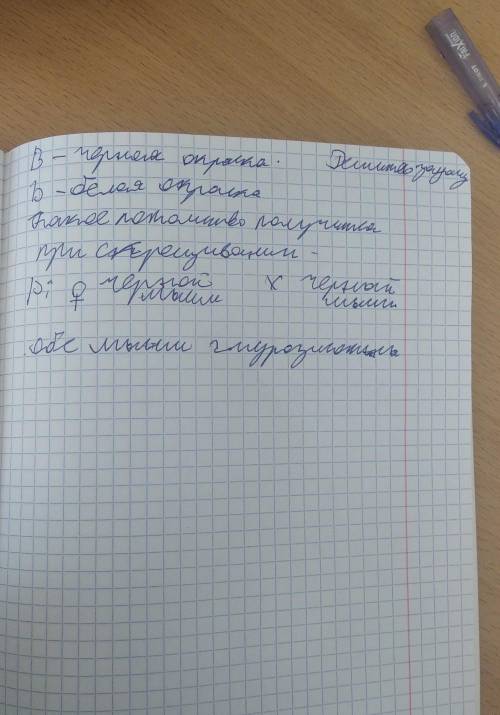 В – черная окраска. Решить задачу
b – белая окраска
Какое потомство получится
при скрещивании –
P: ♀ черной мыши х черной мыши
обе мыши гетерозиготны
PILOT